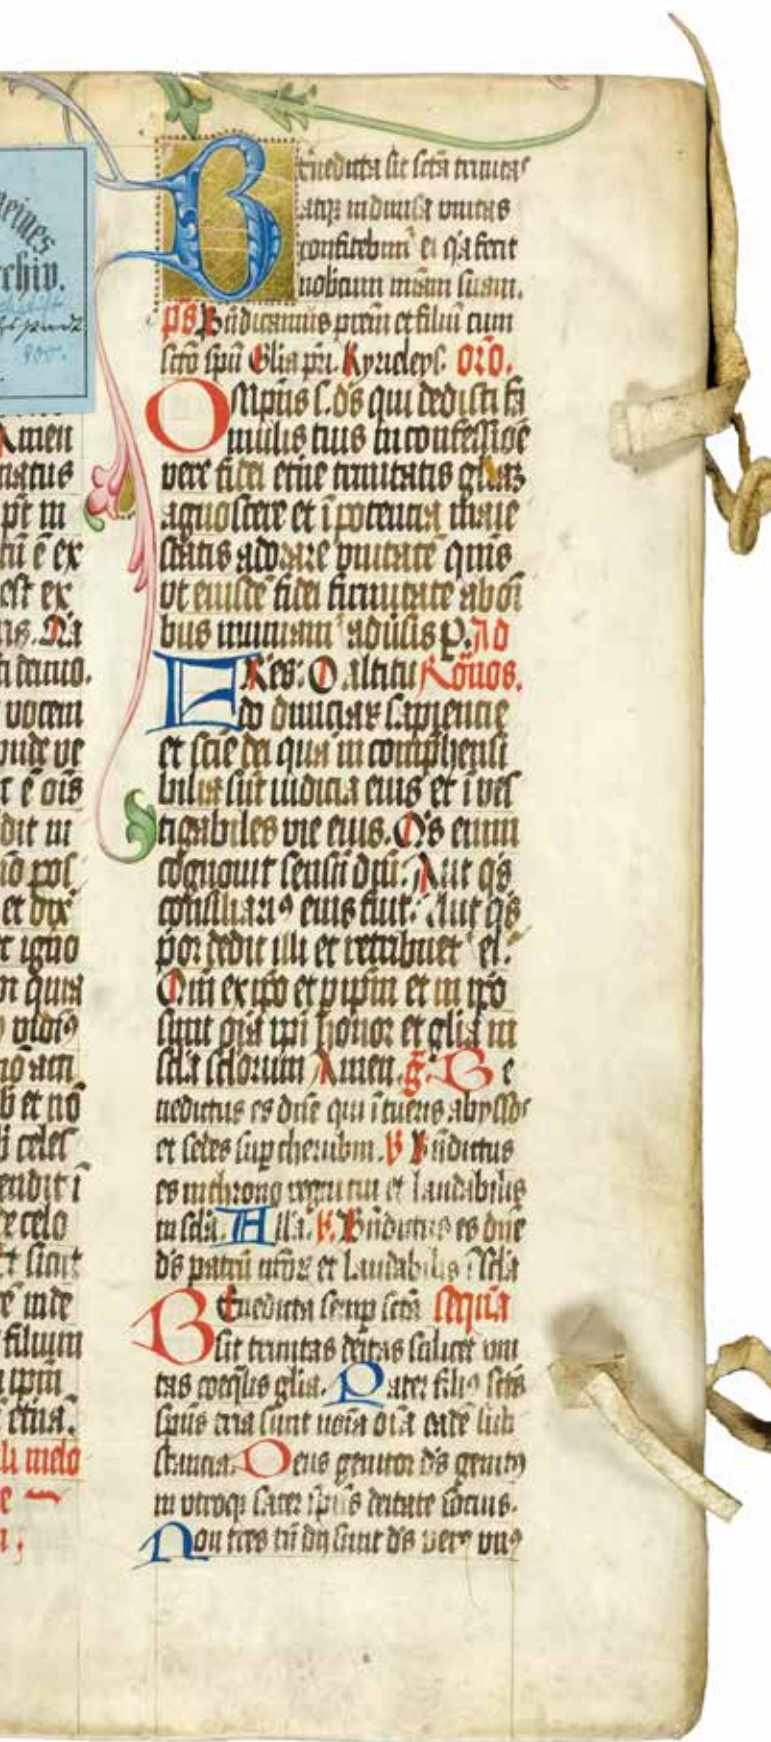 eines
chiv.
900.
Amen
natus
pt in
tū ē ex
est ex
ris. Na
denuo.
vocem
unde ve
t ē oīs
dit in
iō pos
et dix
t igno
m quia
vidis
nō am
b et nō
celes
endit ī
e celo
Et sicut
mde
filium
ipm
etna.
li melo
e
Benedicta sit sctā trinitas
atqꝫ indiuisa vnitas
confitebimʳ ei qꝛ fecit
nobcum miām suam.
ps Bñdicamus prem et filiū cum
sctō spū Glia pri. Kyrieleys. oro.
Ompīs s. ds qui dedisti fa
mulis tuis in confessiōe
vere fidei etne trinitatis gliaꝫ
agnoscere et ī potencia maie
statis adorare vnitatē qūis
vt eiusdē fidei firmitate ab oī
bus muniamʳ adūsis P. Ad
Fr̄es: O altitu Romos.
do diuiciaꝝ sapiencie
et scīe dei quā incomp̄hensi
bilia sūt iudicia eius et īves
tigabiles vie eius. Qⁱs enim
cognouit sensū dn̄i. Aut qⁱs
consiliariꝰ eius fuit. Aut qⁱs
por dedit illi et retribuetʳ ei.
Qm̄ ex ip̄o et p ip̄m et in ip̄o
sunt oīa ip̄i honor et gliā in
sclā sclorum Amen. g̃. Be
nedictus es dn̄e qui ītueris abyssos
et sedes sup cherubim. V Bn̄dictus
es in throno regni tui et laudabilis
in sclā. Alla. V. Bn̄dictus es dn̄e
ds patrū nr̄oꝝ et laudabilis ī sclā
Benedicta semp sctā sequīa
sit trinitas deitas scilicet vni
tas coeqlis glia. Pater filiꝰ scs̄
spūs tria sunt noīa oīa eadē sub
stancia. Deus genitor ds genitꝰ
in vtroqꝫ sacer spūs deitate socius.
Non tres tn̄ dij sunt ds verꝰ vnꝰ